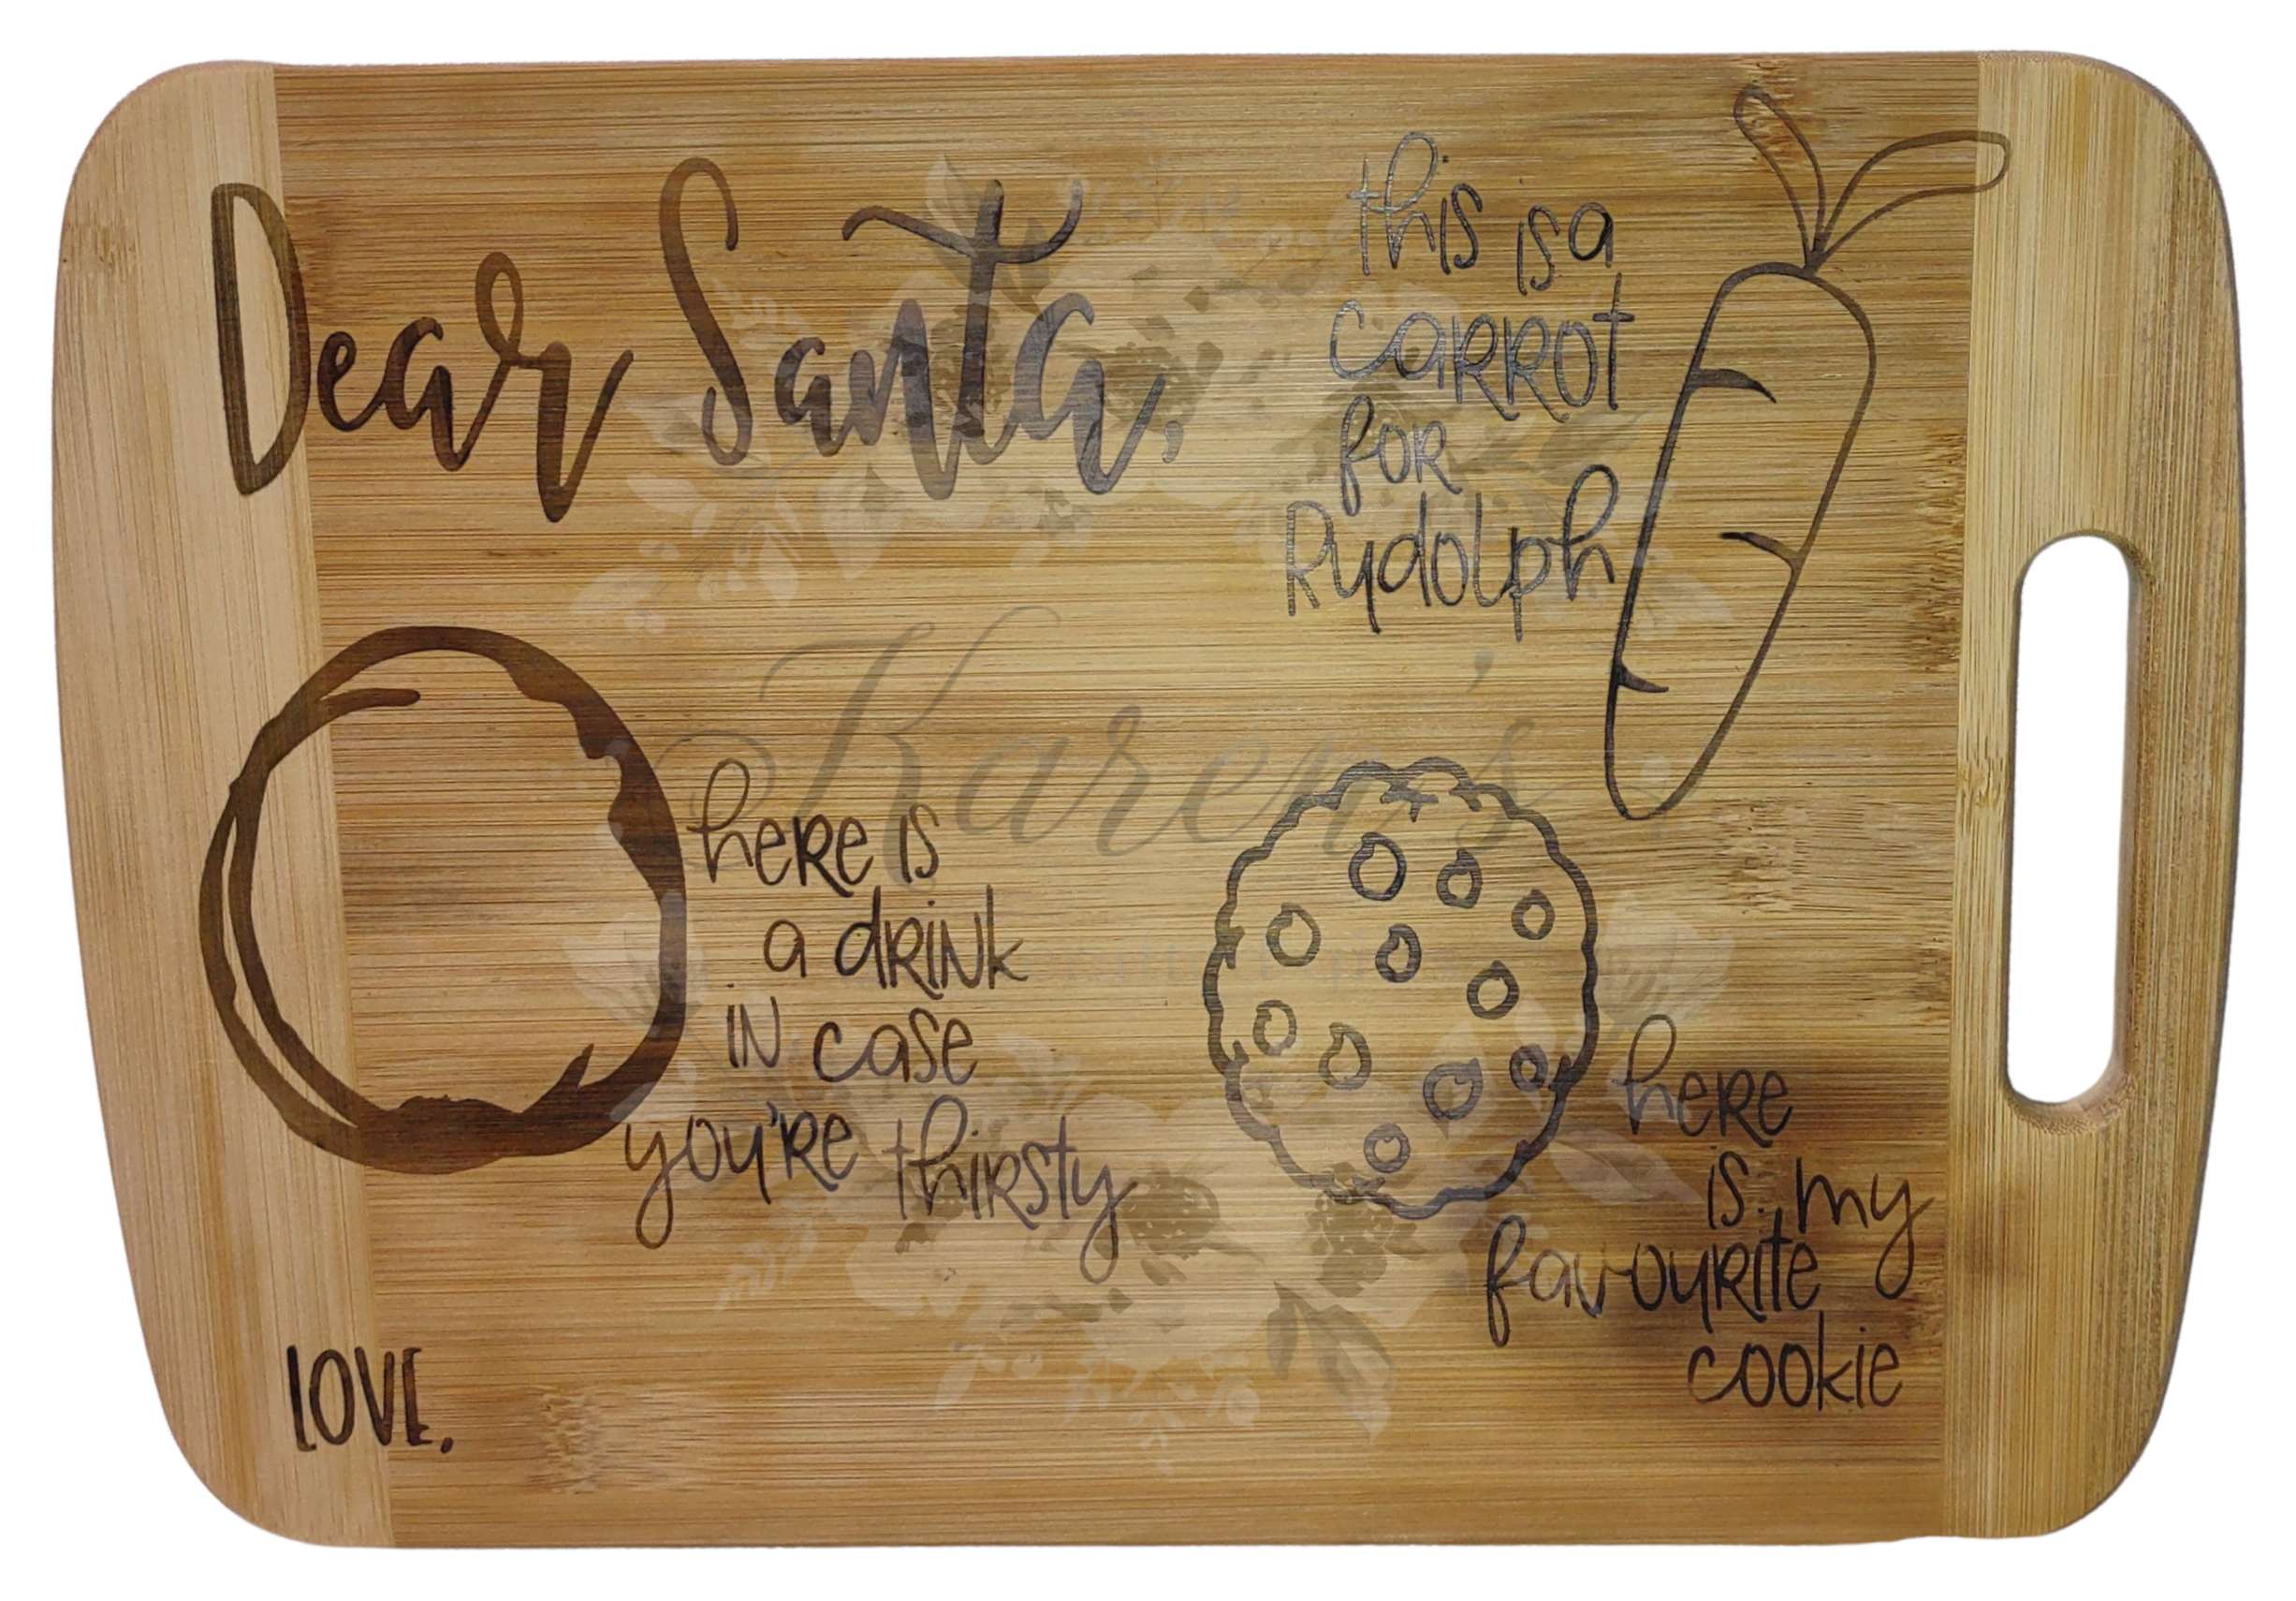 Dear Santa,
this is a
carrot
for
Rudolph
Karen's
here is
a drink
in case
you're thirsty
here
is my
favourite
cookie
LOVE,